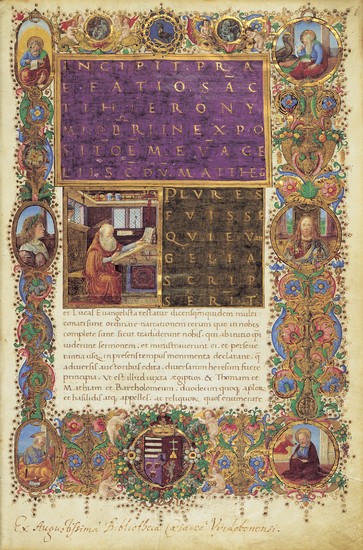 INCIPIT PRA
EFATIO SAC
TI HIERONY
MI PBRI IN EXPO
SITOEM EVAGE
LII SCDM MATHE
PLVRES
FVISSE
QVI EV
GE
SCRI
SERVT
et Lucas Evangelista testatur dicens quidem multi
conati sunt ordinare narrationem rerum que in nobis
complete sunt. sicut tradiderunt nobis: qui ab initio ipsi
viderunt sermonem, et ministraverunt ei, et perseve
rantia usque in presens tempus monimenta declarant. que
a diversis auctoribus edita, diversarum heresum fuere
principia. Ut est illud iuxta ægiptios, & Thomam et
Mathiam et Bartholomeum, duodecim quoque aplorum
et basilidis atque appellis: ac reliquorum quos enumerare
Ex Augustissima Bibliotheca Cæsarea Vindobonensi.